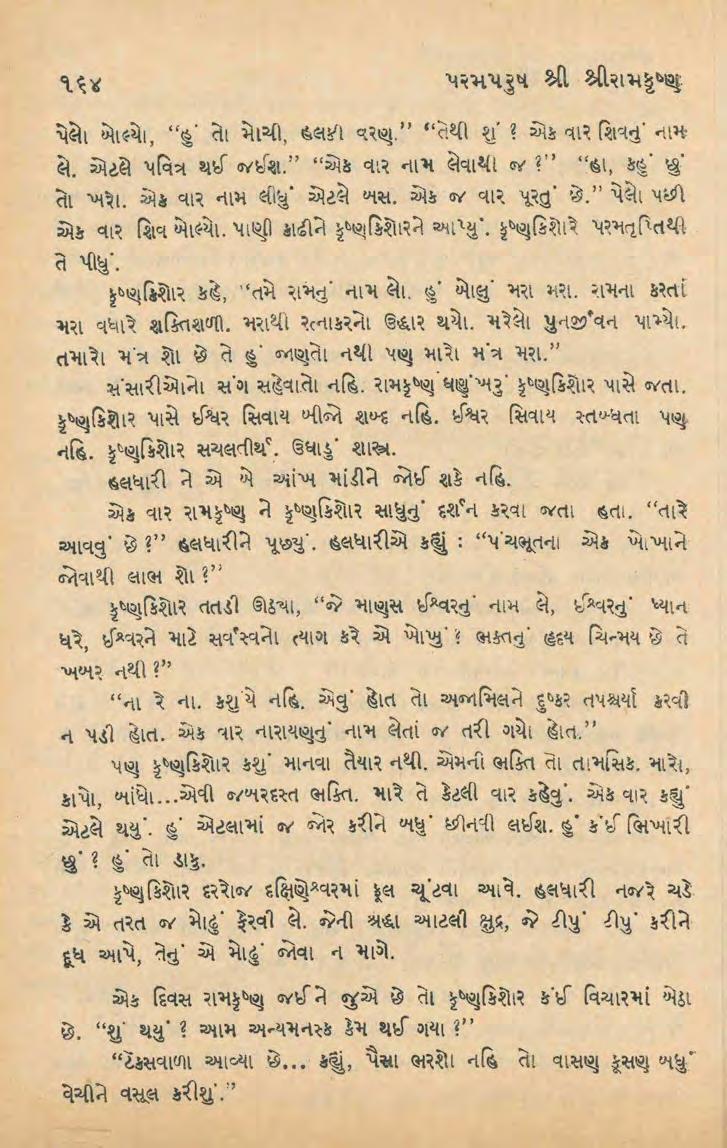 ૧૬૪ પરમપુરુષ શ્રી શ્રીરામકૃષ્ણ
પેલો બોલ્યો, “હું તો મોચી, હલકી વરણ.” “તેથી શું ? એક વાર શિવનું નામ
લે. એટલે પવિત્ર થઈ જઈશ.” “એક વાર નામ લેવાથી જ ?” “હા, કહું છું
તો ખરો. એક વાર નામ લીધું એટલે બસ. એક જ વાર પૂરતું છે.” પેલો પછી
એક વાર શિવ બોલ્યો. પાણી કાઢીને કૃષ્ણકિશોરને આપ્યું. કૃષ્ણકિશોરે પરમતૃપ્તિથી
તે પીધું.
કૃષ્ણકિશોર કહે, “તમે રામનું નામ લો. હું બોલું મરા મરા. રામના કરતાં
મરા વધારે શક્તિશળી. મરાથી રત્નાકરનો ઉદ્ધાર થયો. મરેલો પુનર્જીવન પામ્યો.
તમારો મંત્ર શો છે તે હું જાણતો નથી પણ મારો મંત્ર મરા.”
સંસારીઓનો સંગ સહેવાતો નહિ. રામકૃષ્ણ ઘણુંખરું કૃષ્ણકિશોર પાસે જતા.
કૃષ્ણકિશોર પાસે ઈશ્વર સિવાય બીજો શબ્દ નહિ. ઈશ્વર સિવાય સ્તબ્ધતા પણ
નહિ. કૃષ્ણકિશોર સચલતીર્થ. ઉઘાડું શાસ્ત્ર.
હલધારી ને એ બે આંખ માંડીને જોઈ શકે નહિ.
એક વાર રામકૃષ્ણ ને કૃષ્ણકિશોર સાધુનું દર્શન કરવા જતા હતા. “તારે
આવવું છે ?” હલધારીને પૂછયું. હલધારીએ કહ્યું : “પંચભૂતના એક ખોખાને
જોવાથી લાભ શો ?”
કૃષ્ણકિશોર તતડી ઊઠયા, “જે માણસ ઈશ્વરનું નામ લે, ઈશ્વરનું ધ્યાન
ધરે, ઈશ્વરને માટે સર્વસ્વનો ત્યાગ કરે એ ખોખું ? ભક્તનું હૃદય ચિન્મય છે તે
ખબર નથી ?”
“ના રે ના. કશુંયે નહિ. એવું હોત તો અજામિલને દુષ્કર તપશ્ચર્યા કરવી
ન પડી હોત. એક વાર નારાયણનું નામ લેતાં જ તરી ગયો હોત.”
પણ કૃષ્ણકિશોર કશું માનવા તૈયાર નથી. એમની ભક્તિ તો તામસિક. મારો,
કાપો, બાંધો...એવી જબરદસ્ત ભક્તિ. મારે તે કેટલી વાર કહેવું. એક વાર કહ્યું
એટલે થયું. હું એટલામાં જ જોર કરીને બધું છીનવી લઈશ. હું કંઈ ભિખારી
છું ? હું તો ડાકુ.
કૃષ્ણકિશોર દરરોજ દક્ષિણેશ્વરમાં ફૂલ ચૂંટવા આવે. હલધારી નજરે ચડે
કે એ તરત જ મોઢું ફેરવી લે. જેની શ્રદ્ધા આટલી ક્ષુદ્ર, જે ટીપું ટીપું કરીને
દૂધ આપે, તેનું એ મોઢું જોવા ન માગે.
એક દિવસ રામકૃષ્ણ જઈને જુએ છે તો કૃષ્ણકિશોર કંઈ વિચારમાં બેઠા
છે. “શું થયું ? આમ અન્યમનસ્ક કેમ થઈ ગયા ?”
“ટેક્સવાળા આવ્યા છે... કહ્યું, પૈસા ભરશો નહિ તો વાસણ કૂસણ બધું
વેચીને વસૂલ કરીશું.”